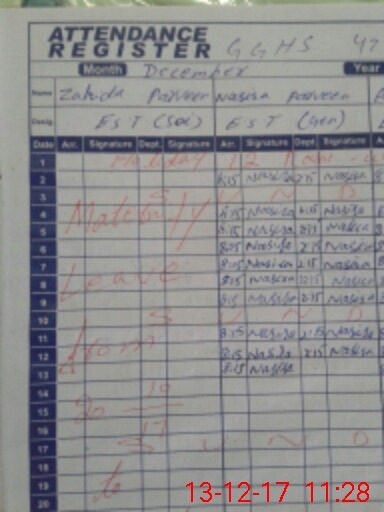 ATTENDANCE
REGISTER GGHS 47
Month December Year
Name Zahida Parveen Nasisa Parveen
Desig. EST (Sci) EST (Gen)
Date Arr. Signature Dept. Signature Arr. Signature Dept. Signature
1 Holiday 12
2 8.15 Nasisa 2.15 Nasisa
3 S U N D
4 Maternity 8.15 Nasisa 2.15 Nasisa
5 8.15 Nasisa 2.15 Nasisa
6 8.15 Nasisa 2.15 Nasisa
7 Leave 8.15 Nasisa 2.15 Nasisa
8 8.15 Nasisa 2.15 Nasisa
9 8.15 Nasisa 2.15 Nasisa
10 S U N D
11 from 8.15 Nasisa 2.15 Nasisa
12 8.15 Nasisa 2.15 Nasisa
13 8.15 Nasisa
14 10
15 20
16 17
17 S U N D
18
19 to
20
13-12-17 11:28